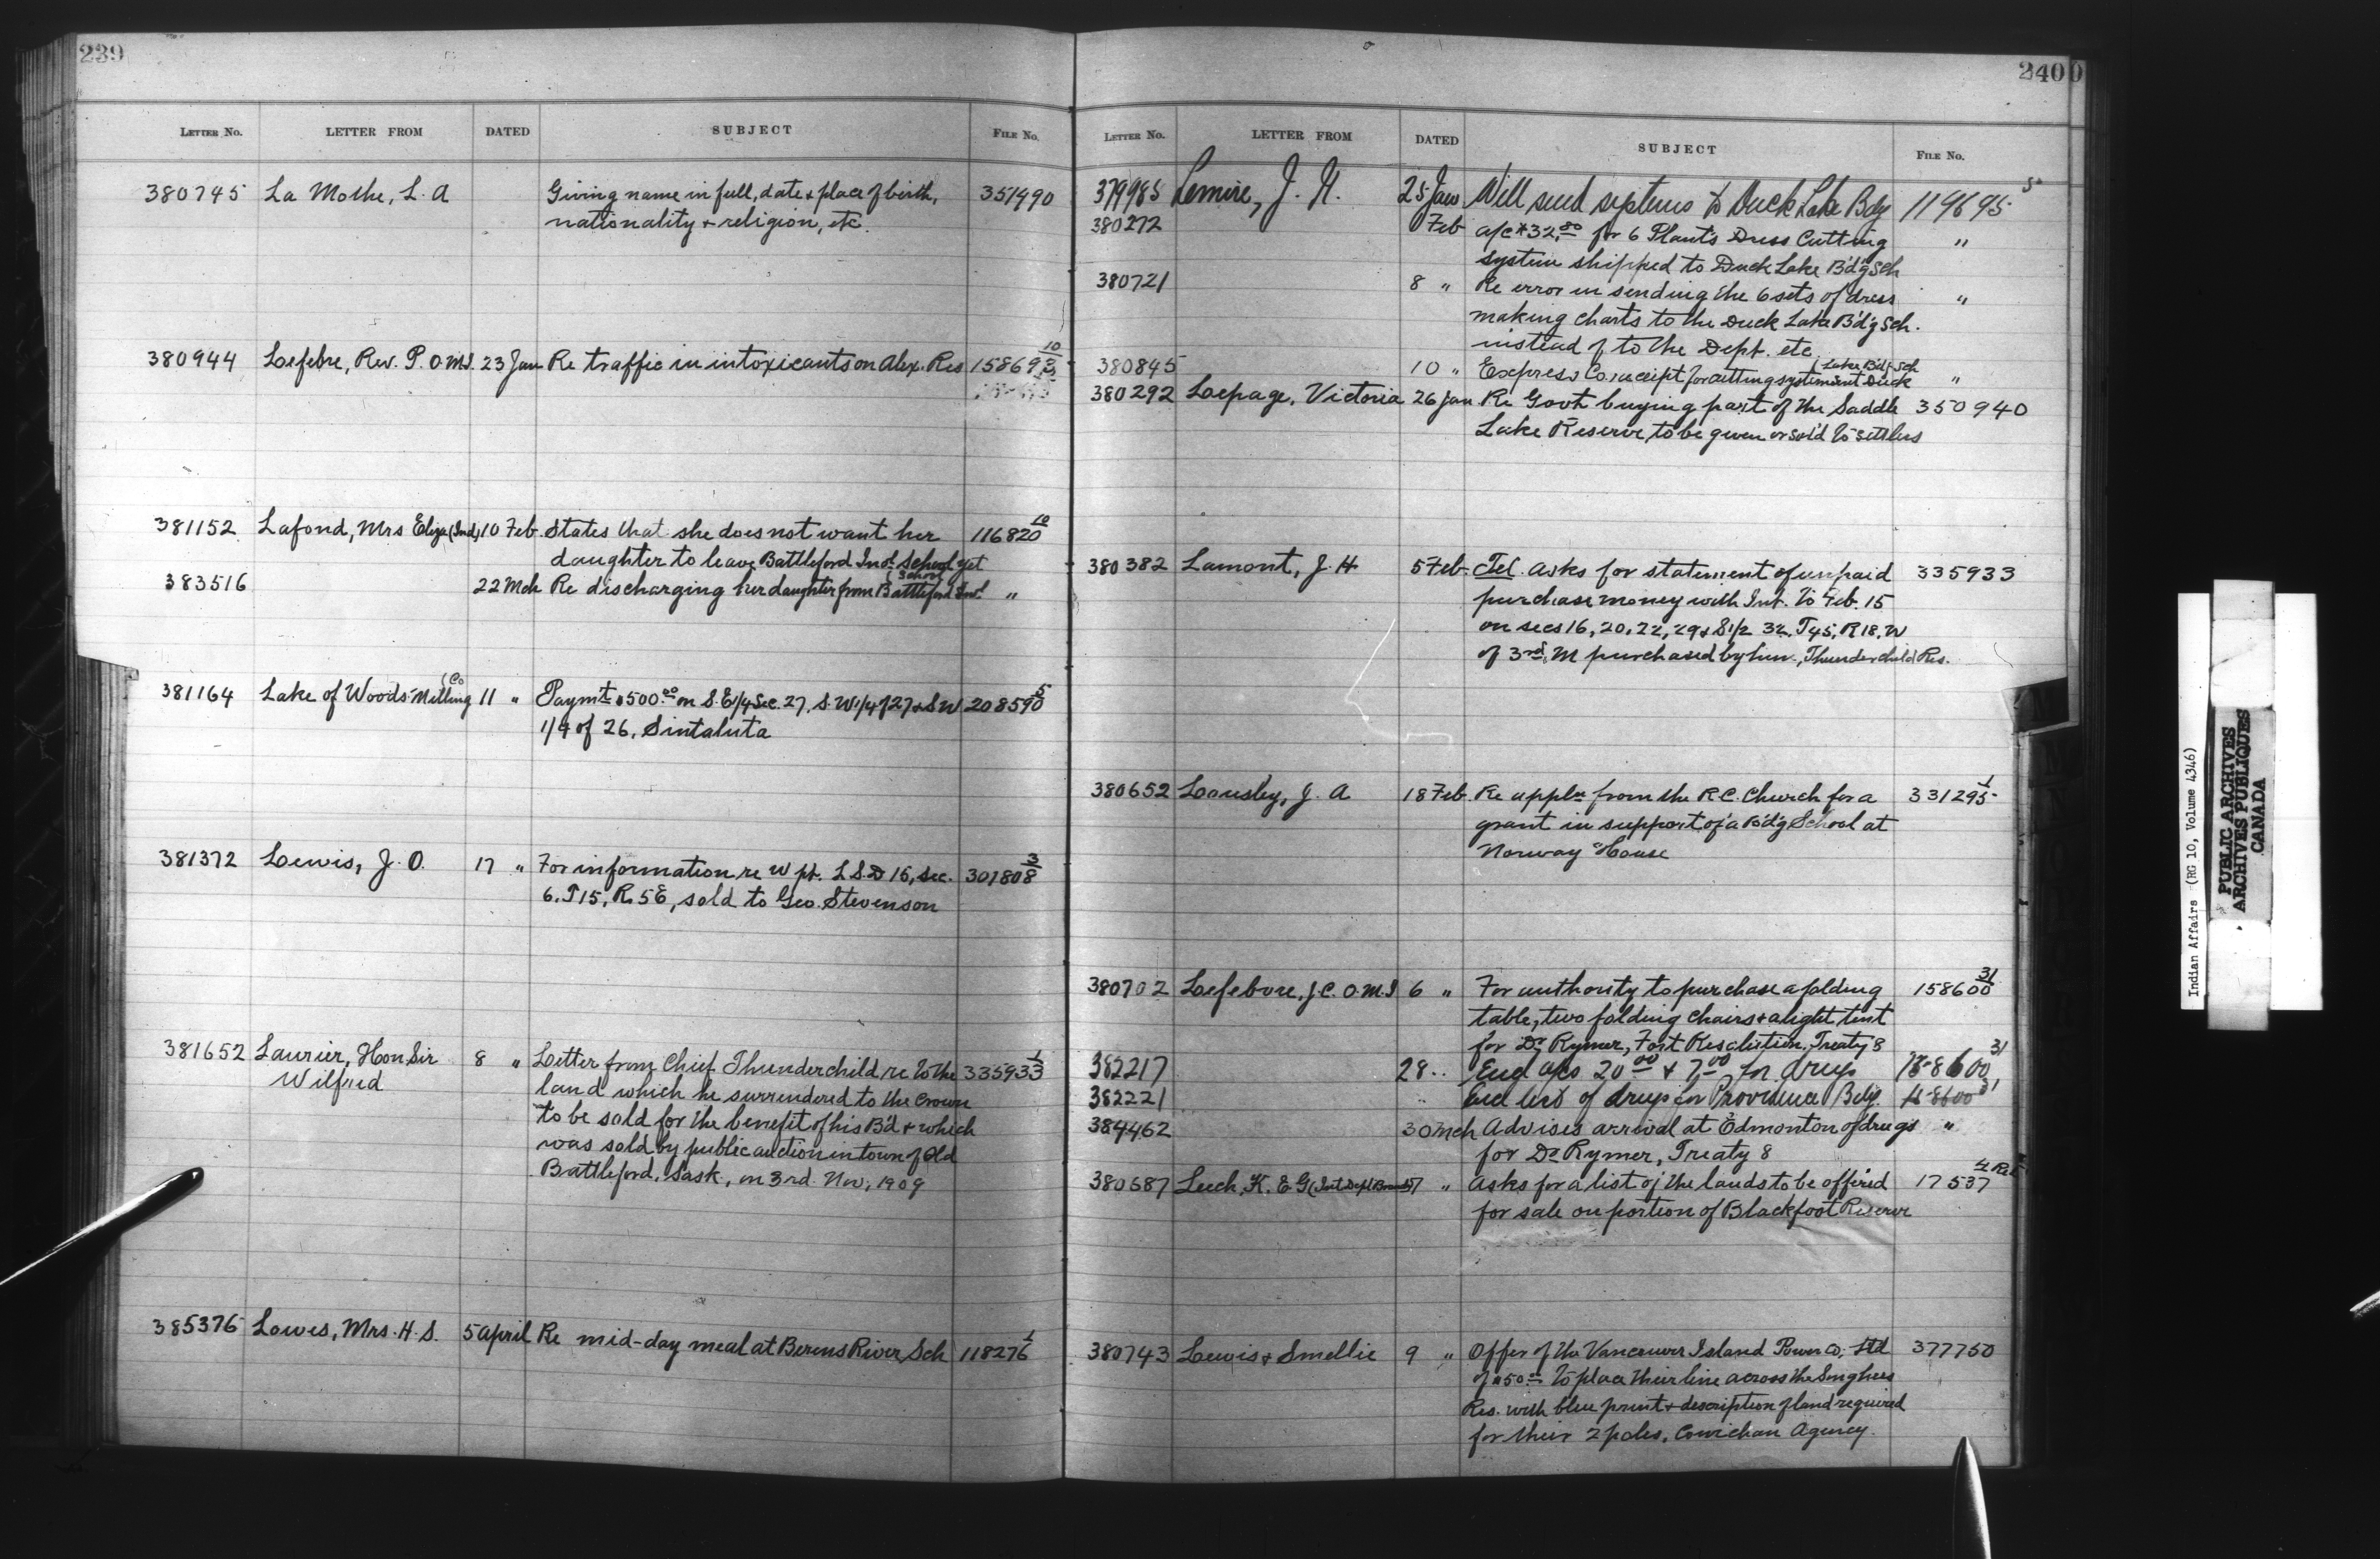 239
LETTER No. LETTER FROM DATED SUBJECT FILE No.
380745 La Mothe, L. A Giving name in full, date & place of birth, 351490
nationality & religion, etc.
380944 Lefebre, Rev. P. O.M.I. 23 Jan Re traffic in intoxicants on Alex. Res 158692 10
381152 Lafond, Mrs Eliza (Ind) 10 Feb. States that she does not want her 116820 10
daughter to leave Battleford Ind. School yet
383516 22 Mch Re discharging her daughter from Battleford Ind. School "
381164 Lake of Woods Milling Co 11 " Paymt $500.00 on S.E 1/4 Sec. 27, S.W 1/4 of 27 & SW 208590 5
1/4 of 26, Sintaluta
381372 Lewis, J. O. 17 " For information re W pt. L S.D 15, sec. 301808 3
6. T15, R. 5E, sold to Geo. Stevenson
381652 Laurier, Hon. Sir 8 " Letter from Chief Thunderchild re to the 335933 1
Wilfrid land which he surrendered to the Crown
to be sold for the benefit of his B'd & which
was sold by public auction in town of Old
Battleford, Sask, on 3rd Nov, 1909
385376 Lowes, Mrs. H. S. 5 April Re mid-day meal at Berens River Sch 118276 1
2400
LETTER No. LETTER FROM DATED SUBJECT FILE No.
379985 Lemire, J. H. 25 Jan Will send systems to Duck Lake Bdg 119695 5
380272 Feb a/c $32.00 for 6 Plant's Dress Cutting "
system shipped to Duck Lake B'd'g Sch
380721 8 " Re error in sending the 6 sets of dress "
making charts to the Duck Lake B'd'g Sch.
instead of to the Dept. etc.
380845 10 " Express Co. receipt for cutting system sent Duck Lake B'd'g Sch "
380292 Lepage, Victoria 26 Jan Re Govt buying part of the Saddle 350940
Lake Reserve, to be given or sold to settlers
380382 Lamont, J. H 5 Feb. Tel. asks for statement of unpaid 335933
purchase money with Int. to Feb. 15
on secs 16, 20, 22, 29 & S 1/2 32, T45, R18, W
of 3rd. M purchased by him, Thunderchild Res.
380652 Lousley, J. A 18 Feb. Re appln from the R.C. Church for a 331295 1
grant in support of a B'd'g School at
Norway House
380702 Lefebvre, J.C. O.M.I 6 " For authority to purchase a folding 158600 31
table, two folding chairs & a light tent
for Dr Rymer, Fort Resolution, Treaty 8
382217 28 " Encl a/cs 20.00 & 7.00 for drugs 158600 31
382221 " Encl list of drugs for Providence Bdg. 158600 31
384462 30 Mch Advises arrival at Edmonton of drugs "
for Dr Rymer, Treaty 8
380687 Leech, K. E. G (Int Dept Branch) 7 " Asks for a list of the lands to be offered 17537
for sale on portion of Blackfoot Reserve
380743 Lewis & Smellie 9 " Offer of the Vancouver Island Power Co; Ltd 377750
of $50.00 to place their line across the Songhees
Res. with blue print & description of land required
for their 2 poles, Cowichan Agency.
Indian Affairs (RG 10, Volume 4346)
PUBLIC ARCHIVES
ARCHIVES PUBLIQUES
CANADA